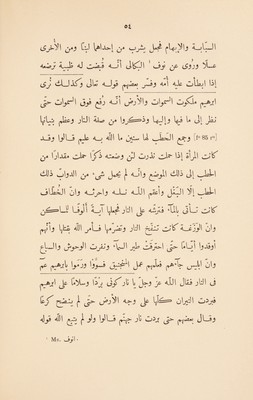 ٥٤
السبّابة والإبهام فجعل يشرب من إحداهما لبنا ومن الأخرى
عسلًا وروى عن نوف¹ البكالى أنّه قُيّضت له ظبية ترضعه
إذا ابطأت عليه أمّه وفسّر بعضهم قوله تعالى وكذلك نُرى
ابرهيم ملكوت السموات والأرض أنّه رُفع فوق السموات حتّى
نظر إلى ما فيها وإليها وذكروا من صفة النار وعظم بنيانها
[fº 85 rº] وجمع الحطب لها سنين ما الله به عليم قالوا وقد
كانت المرأة إذا حملت نذرت لئن وضعته ذكرًا حملت مقدارًا من
الحطب إلى ذلك الموضع وأنّه لم يحمل شىء من الدوابّ ذلك
الحطب إلّا البغل وأعقم اللّه نسله واحرثه وأنّ الخطّاف
كانت تأتى بالمآء فترشّه على النار فجعلها آيةً ألُوفًا للمساكن
وأنّ الوَزَغة كانت تنفّخ النار وتضرمها فأمر الله بقتلها وأنّهم
أوقدوا أيّامًا حتّى احترقت طير السمآء ونفرت الوحوش والسباع
وأنّ ابليس جآءهم فعلّمهم عمل المنجنيق فسوّوا ورموا بابرهيم عم
فى النار فقال الله عزّ وجلّ يا نار كونى بردًا وسلامًا على ابرهيم
فبردت النيران كلّها على وجه الأرض حتّى لم ينضح كرعًا
وقال بعضهم حتّى بردت نار جهنّم قالوا ولو لم يتبع الله قوله
¹ Ms. نوف.